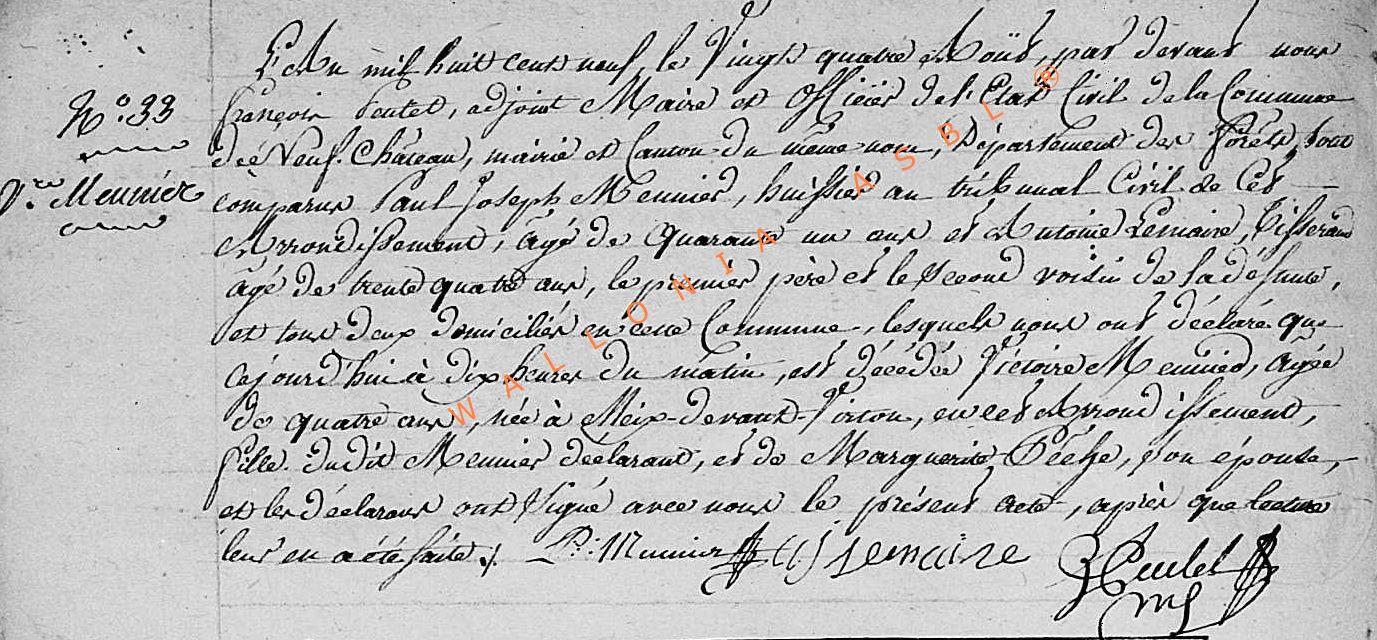 L'An mil huit cent neuf, le Vingt quatre Août, par devant nous
N.o 33
françois Poulet, adjoint Maire et Officier de l'Etat Civil de la Commune
de Neuf-Château, mairie et Canton du même nom, Département des Forêts, sont
V.re Meunier
comparus Paul Joseph Meunier, huissier au tribunal Civil de Cet
Arrondissement, âgé de quarante un ans et Antoine Lemaire, Tisserand
âgé de trente quatre ans, le premier père et le second voisin de la défunte,
et tous deux domiciliés en cette Commune, lesquels nous ont déclaré que
cejourd'hui à dix heures du matin, est décédée Victoire Meunier, âgée
de quatre ans, née à Meix-devant-Virton, en cet Arrondissement,
fille dudit Meunier déclarant, et de Marguerite Pêche, son épouse,
et les déclarans ont signé avec nous le présent acte, après que lecture
leur en a été faite ./. P.: Meunier aj lemaire
Poulet
WALLONIA ASBL ®